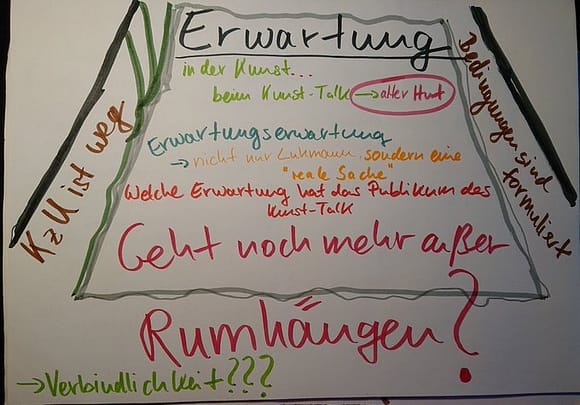 Erwartung
in der Kunst...
beim Kunst-Talk → alter Hut
Erwartungserwartung
→ nicht nur Luhmann, sondern eine
"reale Sache"
Welche Erwartung hat das Publikum das
Kunst-Talk
Geht noch mehr außer
"Rumhängen?
→ Verbindlichkeit???
KzU ist weg
Bedingungen sind
formuliert